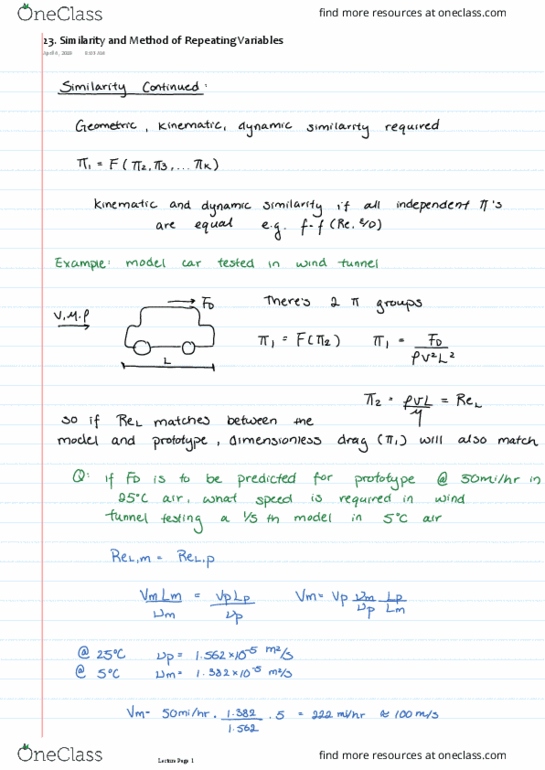 OneClass
find more resources at oneclass.com
23. Similarity and Method of Repeating Variables
Similarity Continued:
Geometric, kinematic, dynamic similarity required
π₁ = F(π₂, π₃, ... πₖ)
kinematic and dynamic similarity if all independent π's
are equal e.g. f=f(Re, ε/D)
Example: model car tested in wind tunnel
There's 2 π groups
V, μ, ρ
F_D
L
π₁ = F(π₂) π₁ = F_D / ρV²L²
π₂ = ρVL / μ = Re_L
so if Re_L matches between the
model and prototype, dimensionless drag (π₁) will also match
Q: if F_D is to be predicted for prototype @ 50mi/hr in
25°C air, what speed is required in wind
tunnel testing a 1/5 th model in 5°C air
Re_L,m = Re_L,p
VmLm / νm = VpLp / νp Vm = Vp νm/νp Lp/Lm
@ 25°C νp = 1.562×10⁻⁵ m²/s
@ 5°C νm = 1.382×10⁻⁵ m²/s
Vm = 50mi/hr · 1.382 / 1.562 · 5 = 222 mi/hr ≈ 100 m/s
OneClass
Lecture Page 1
find more resources at oneclass.com